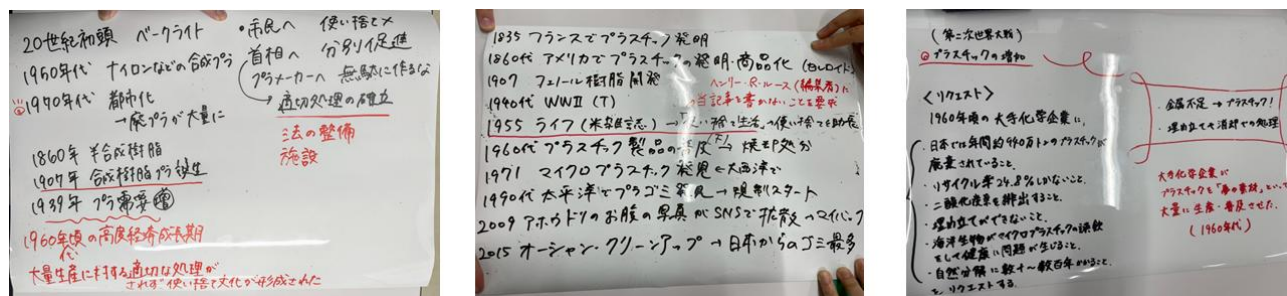 20世紀初頭 ベークライト
1950年代 ナイロンなどの合成プラ
1970年代 都市化
→廃プラが大量に
1860年 半合成樹脂
1907年 合成樹脂プラ誕生
1939年 プラ需要増
1960年頃の高度経済成長期
代
大量生産に対する適切な処理が
されず使い捨て文化が形成された
・市民へ 使い捨て×
首相へ 分別促進
プラメーカーへ 無駄に作るな
→適切処理の確立
法の整備
施設
1835 フランスでプラスチック発明
1860代 アメリカでプラスチックの発明・商品化 (セルロイド)
1907 フェノール樹脂開発
ヘンリー・R・ルース(編集者)に
当記事を書かないことを要求
1940代 WWⅡ (T)
1955 ライフ(米雑誌) →「使い捨て生活」→使い捨てを助長
1960代 プラスチック製品の普及 → 焼却処分
1971 マイクロプラスチック発見 ← 大西洋で
1990代 太平洋でプラゴミ発見 → 規制スタート
2009 アホウドリのお腹の写真がSNSで拡散 マイバック
2015 オーシャン・クリーンアップ → 日本からのゴミ最多
(第二次世界大戦)
プラスチックの増加
・金属不足 → プラスチック!
・埋め立てや消却での処理
〈リクエスト〉
1960年頃の大手化学企業に、
・日本では年間約940万トンのプラスチックが
廃棄されていること、
・リサイクル率24.8%しかないこと、
・二酸化炭素を排出すること、
・埋め立てができないこと、
・海洋生物がマイクロプラスチックの誤飲
をして健康に問題が生じること、
・自然分解に数十〜数百年かかること、
をリクエストする
大手化学企業が
プラスチックを「夢の素材」といって
大量に生産・普及させた。
(1960年代)